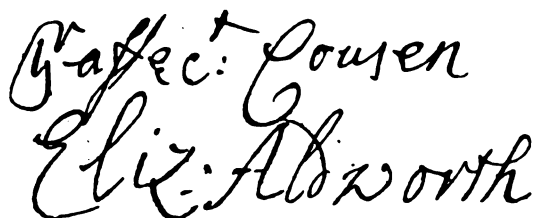 Yr affect: Cousen
Eliz: Aldworth